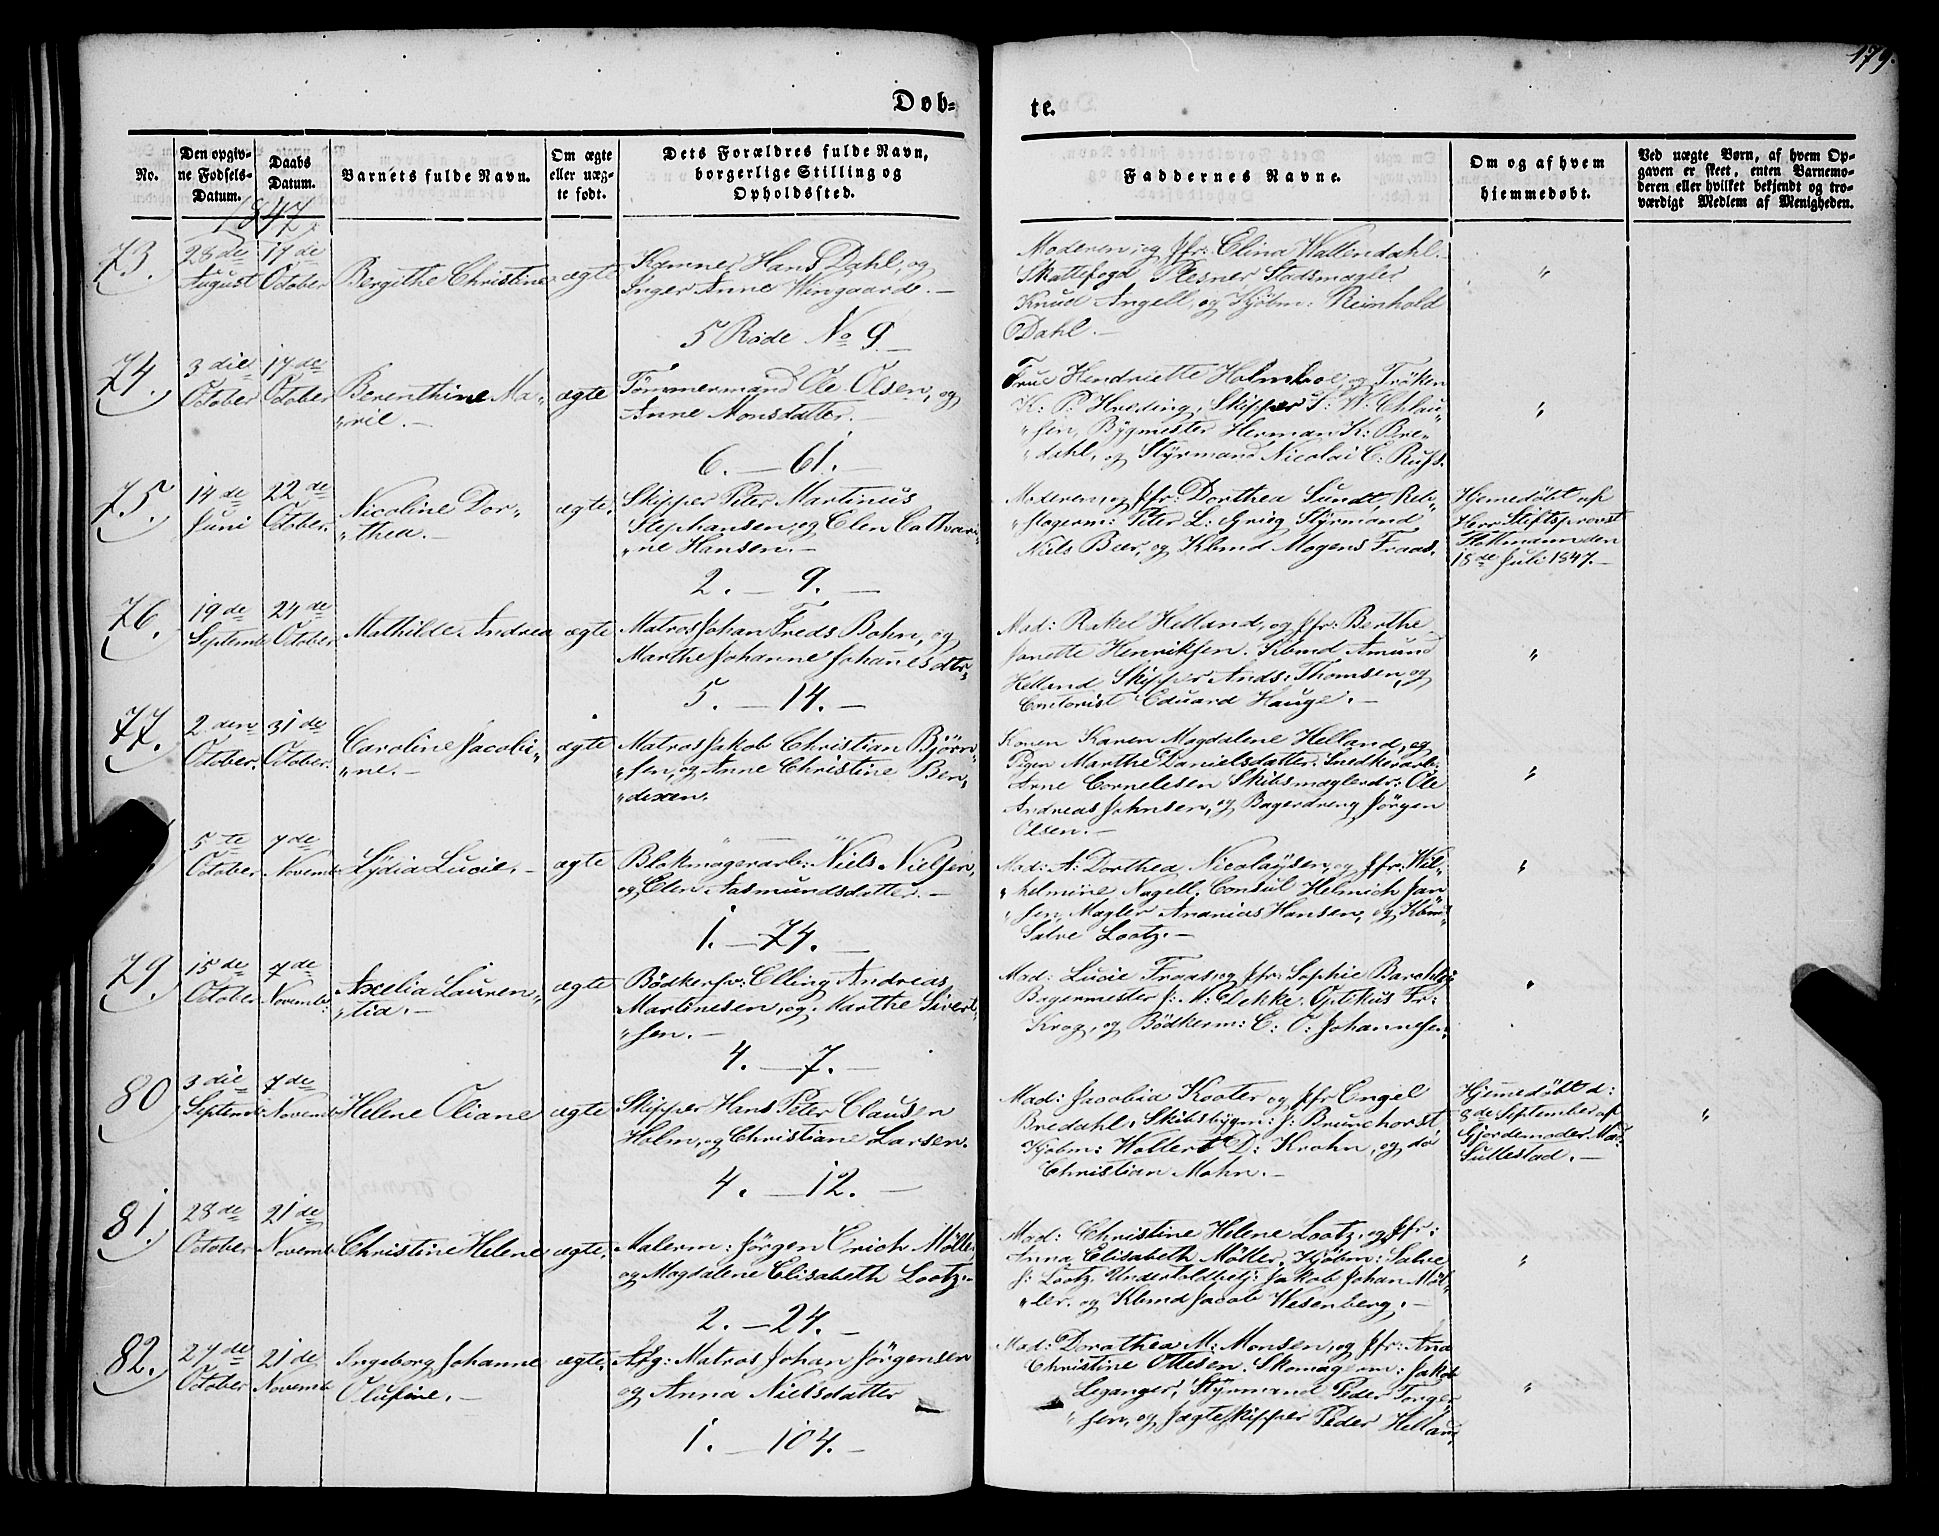 179.
Døb-
te.
No.
Den opgiv-
ne Fødsels-
Datum.
Daabs
Datum.
Barnets fulde Navn.
Om ægte
eller uæg-
te født.
Dets Forældres fulde Navn,
borgerlige Stilling og
Opholdssted.
Faddernes Navne.
Om og af hvem
hjemmedøbt.
Ved uægte Børn, af hvem Op-
gaven er skeet, enten Barnemo-
deren eller hvilket bekjendt og tro-
værdigt Medlem af Menigheden.
1847.
73.
28de
August
17de
October
Bergithe Christine
ægte
Kæmner Hans Dahl, og
Inger Anne Wingaarde.—
5 Rode No 9.—
Moderen, og Jfr: Elina Wallendahl.
Skattefogd Plesner Stadsmægler
Knud Angell, og Kjøbm: Reinhold
Dahl.—
"
74.
3die
October
17de
October
Berenthine Ma-
"rie.—
ægte
Tømmermand Ole Olsen, og
Anne Monsdatter.—
6.—61.—
Frue Henriette Holmboe, og Frøken
K: P: Hveding, Skipper S: W: Chlau"
"sen, Bygmester Herman K: Bre"
"dahl, og Styrmand Nicolai C: Russ.
"
75.
14de
Juni
22de
October.
Nicoline Dor"
"thea.—
ægte.
Skipper Peter Martinus
Stephansen, og Elen Cathari"
"ne Hansen.—
2.—9.—
Moderen, og Jfr: Dorthea Sundt, Reb"
"slagerm: Peter L: Grieg Styrmand
Niels Beer, og Kbmd Mogens Traas.
Hjemedøbt af
Herr Stiftsprovst
den
18de Juli 1847.—
76.
19de
Septemb:
24de
October
Mathilde Andrea
ægte
Matros Johan Freds Bohn, og
Marthe Johanne Johanesdtr.
5.—14.—
Mad: Rakel Helland, og Jfr: Berthe
Janette Henriksen. Kbmd Amund
Helland Skipper Ands: Thomsen, og
Contorist Eduard Hauge.—
"
77.
2den
October.
31de
October.
Caroline Jacobi"
"ne.—
ægte
Matros Jakob Christian Bjørn"
"sen, og Anne Christine Ben"
"dixen.
Konen Karen Magdalene Helland, og
Pigen Marthe Danielsdatter. Snedkerarb:
Arne Cornelesen Skibsmæglerdr: Ole
Andreas Johnsen, og Bagerdreng Jørgen
Olsen.—
"
5te
October
7de
Novemb:
Lydia Lucie.—
ægte
Blokmagerarb: Niels Nielsen,
og Elen Aasmundsdatter.—
1.—74.—
Mad: A: Dorthea Nicolaysen, og Jfr: Wil"
"helmine Nagell. Consul Helmich Jan"
"sen, Mægler Ananias Hansen, og Kbmd
Salve Lootz.—
"
79.
15de
October
7de
Novemb:
Axelia Lauren"
"tia.—
ægte
Bødkersv: Elling Andreas
Martinesen, og Marthe Sivert"
"sen.—
4.—7.—
Mad: Lucie Traas, og Jfr: Sophie
Bagermester J: M: Dekke. Optikus Fr:
Krog, og Bødkerm: C: O: Johannesen.
"
80
3die
Septemb:
7de
Novemb:
Helene Oliane
ægte
Skipper Hans Peter Clausen
Holm, og Christiane Larsen.
4.—12.—
Mad: Jacobia Kooter og Jfr Engel
Bredahl. Skibsbygm: J: Brunchorst
Kjøbm: Wollert D: Krohn, og do
Christian Mohn.—
Hjemedøbt d:
8de September af
Gjordemoder Mad:
Sullestad.—
"
81.
28de
October
21de
Novemb:
Christine Helene
ægte.
Malerm: Jørgen Erich Møller,
og Magdalene Elisabeth Lootz.—
2.—24.—
Mad: Christine Helene Lootz, og Jfr:
Anna Elisabeth Møller. Kjøbm: Salve
J: Lootz, Undertoldbetj: Jakob Johan Møl"
"ler, og Kbmd Jacob Wesenberg.—
"
82.
27de
October
21de
Novemb:
Ingeborg Johanne
Olufine.—
ægte.
Afg: Matros Johan Jørgensen
og Anna Nielsdatter
1.—104.—
Mad: Dorothea M: Monsen, og Jfr: Ana
Christine Ottesen. Skomagerm: Jakob
Leganger, Styrmand Peder Torger"
"sen, og Jægteskipper Peder Helland.
"